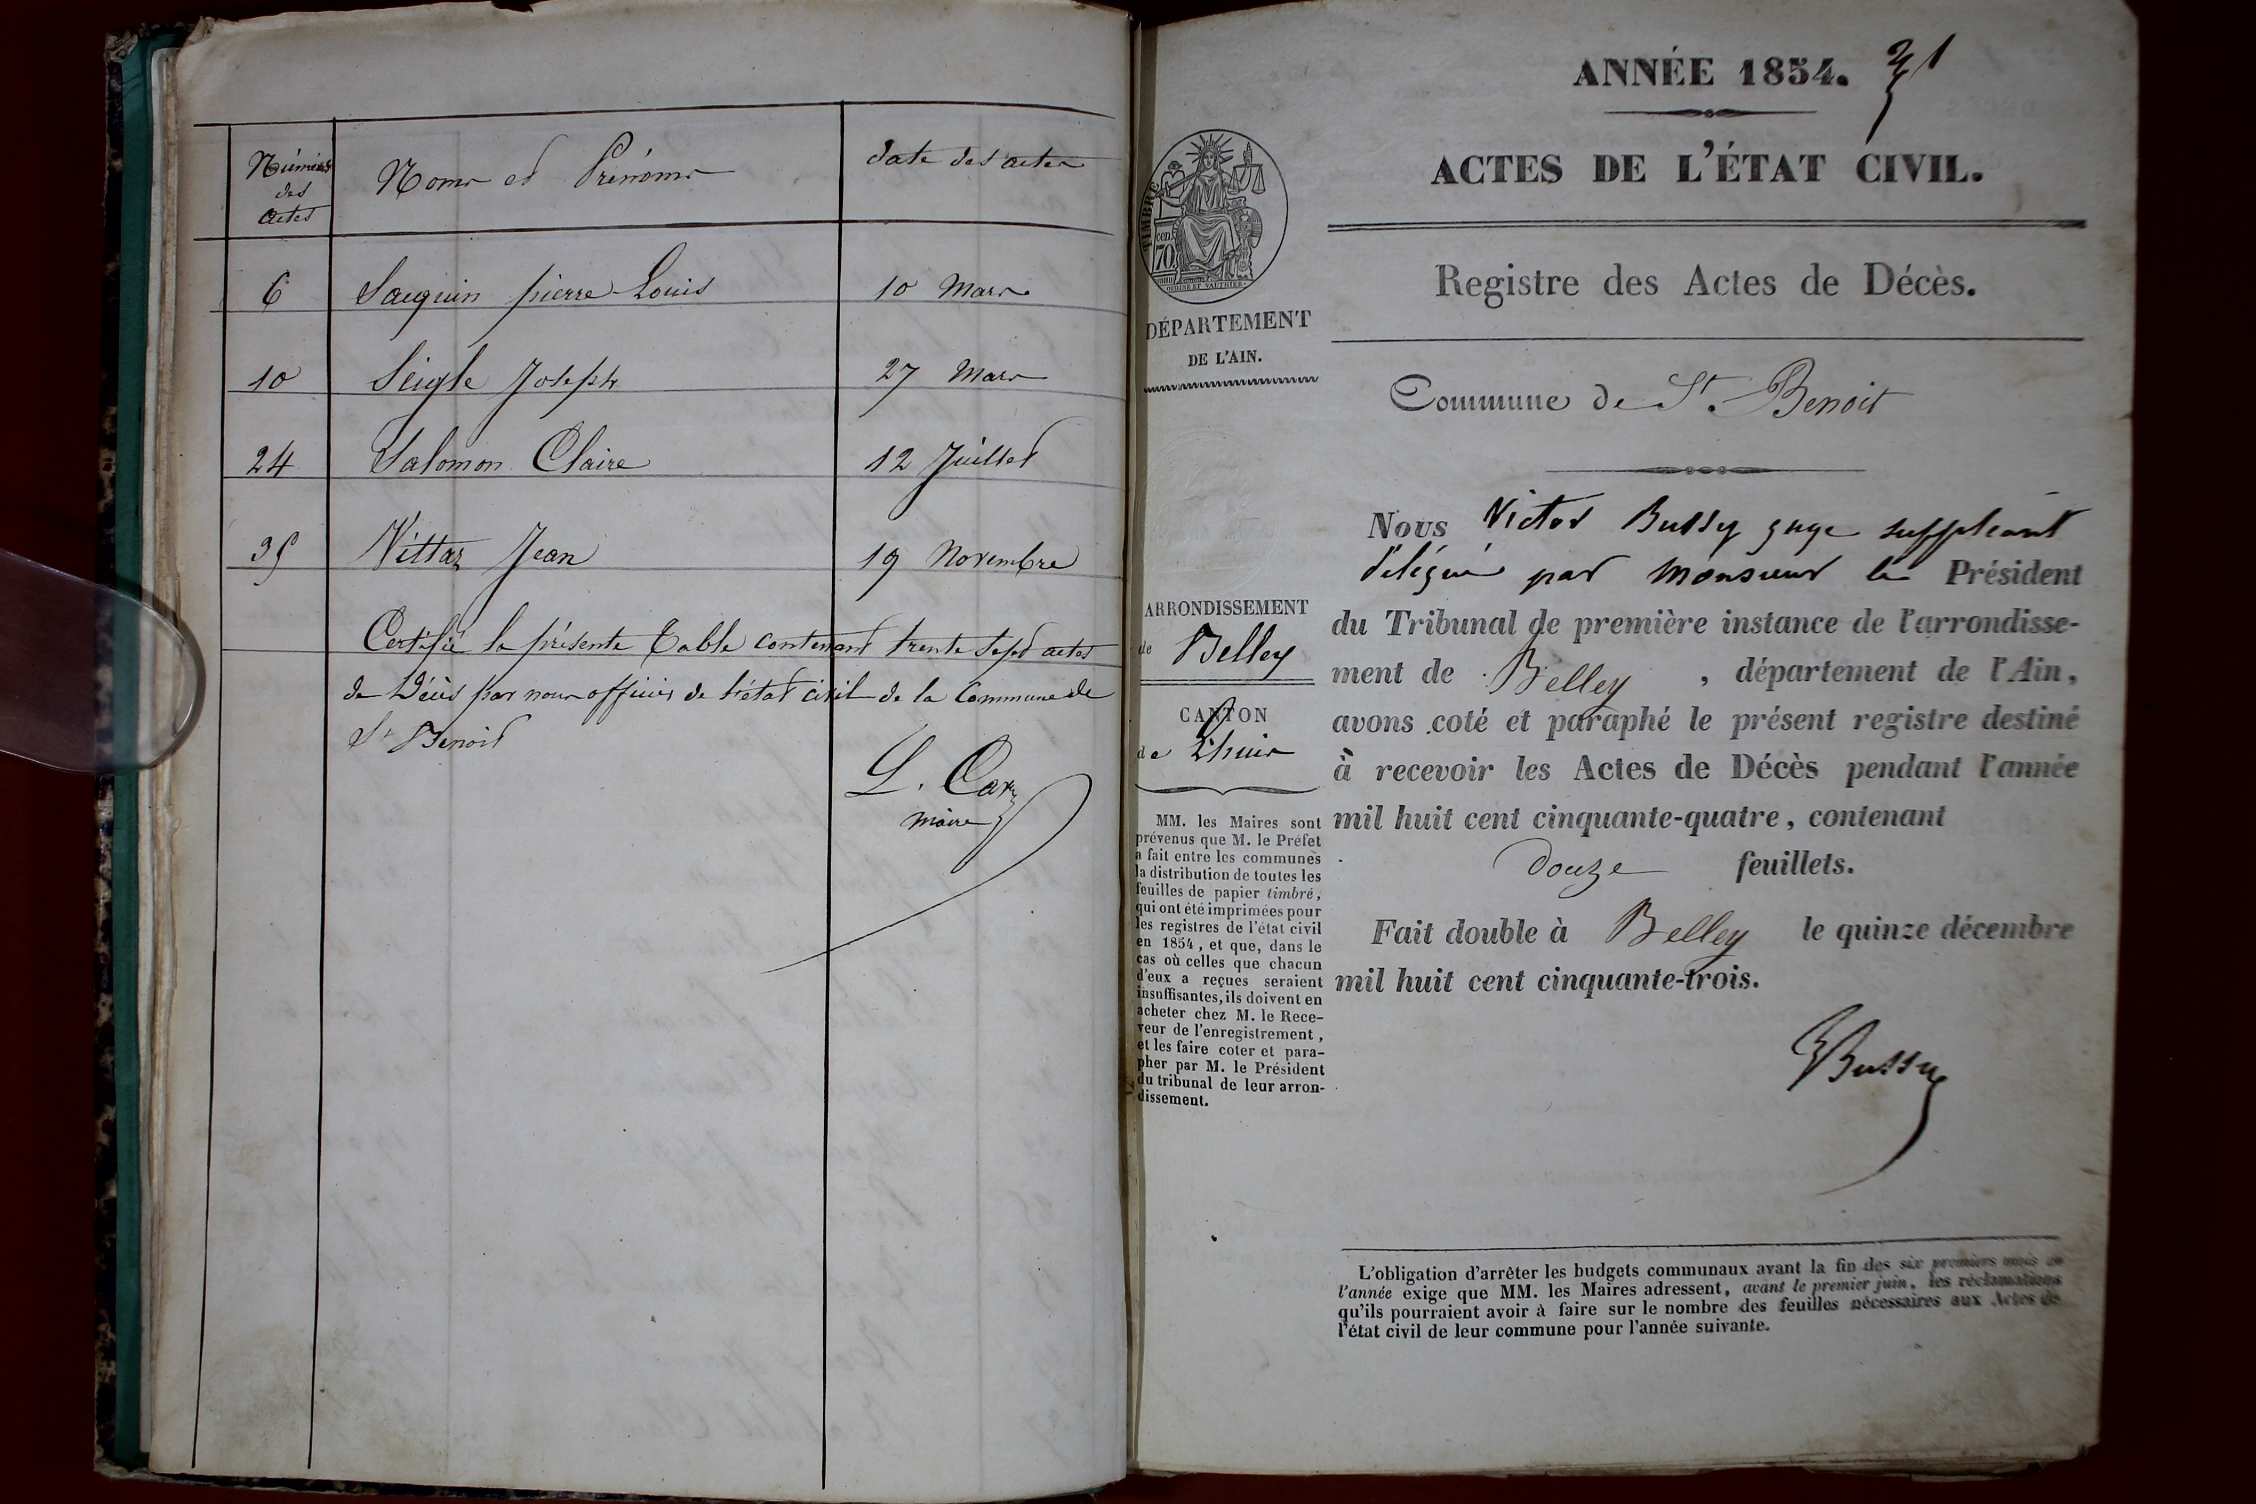 Numéros des actes Noms et Prénoms date des actes
6 Saquin pierre Louis 10 Mars
10 Seigle Joseph 27 Mars
24 Salomon Claire 12 Juillet
35 Vittaz Jean 19 Novembre
Certifié la présente Table contenant trente sept actes
de Décès par nous officier de l'état civil de la Commune de
St Benoit
L. Car
maire
ANNÉE 1854. 1
ACTES DE L'ÉTAT CIVIL.
TIMBRE
cent
70
DÉPARTEMENT
DE L'AIN.
Registre des Actes de Décès.
Commune de St. Benoit
Nous Victor Bussy juge suppléant
délégué par Monsieur le Président
du Tribunal de première instance de l'arrondisse-
ment de Belley, département de l'Ain,
avons coté et paraphé le présent registre destiné
à recevoir les Actes de Décès pendant l'année
mil huit cent cinquante-quatre, contenant
douze feuillets.
Fait double à Belley le quinze décembre
mil huit cent cinquante-trois.
Bussy
ARRONDISSEMENT
de Belley
CANTON
de Lhuis
MM. les Maires sont
prévenus que M. le Préfet
a fait entre les communes
la distribution de toutes les
feuilles de papier timbré,
qui ont été imprimées pour
les registres de l'état civil
en 1854, et que, dans le
cas où celles que chacun
d'eux a reçues seraient
insuffisantes, ils doivent en
acheter chez M. le Rece-
veur de l'enregistrement,
et les faire coter et para-
pher par M. le Président
du tribunal de leur arron-
dissement.
L'obligation d'arrêter les budgets communaux avant la fin des six premiers mois de
l'année exige que MM. les Maires adressent, avant le premier juin, les réclamations
qu'ils pourraient avoir à faire sur le nombre des feuilles nécessaires aux Actes de
l'état civil de leur commune pour l'année suivante.